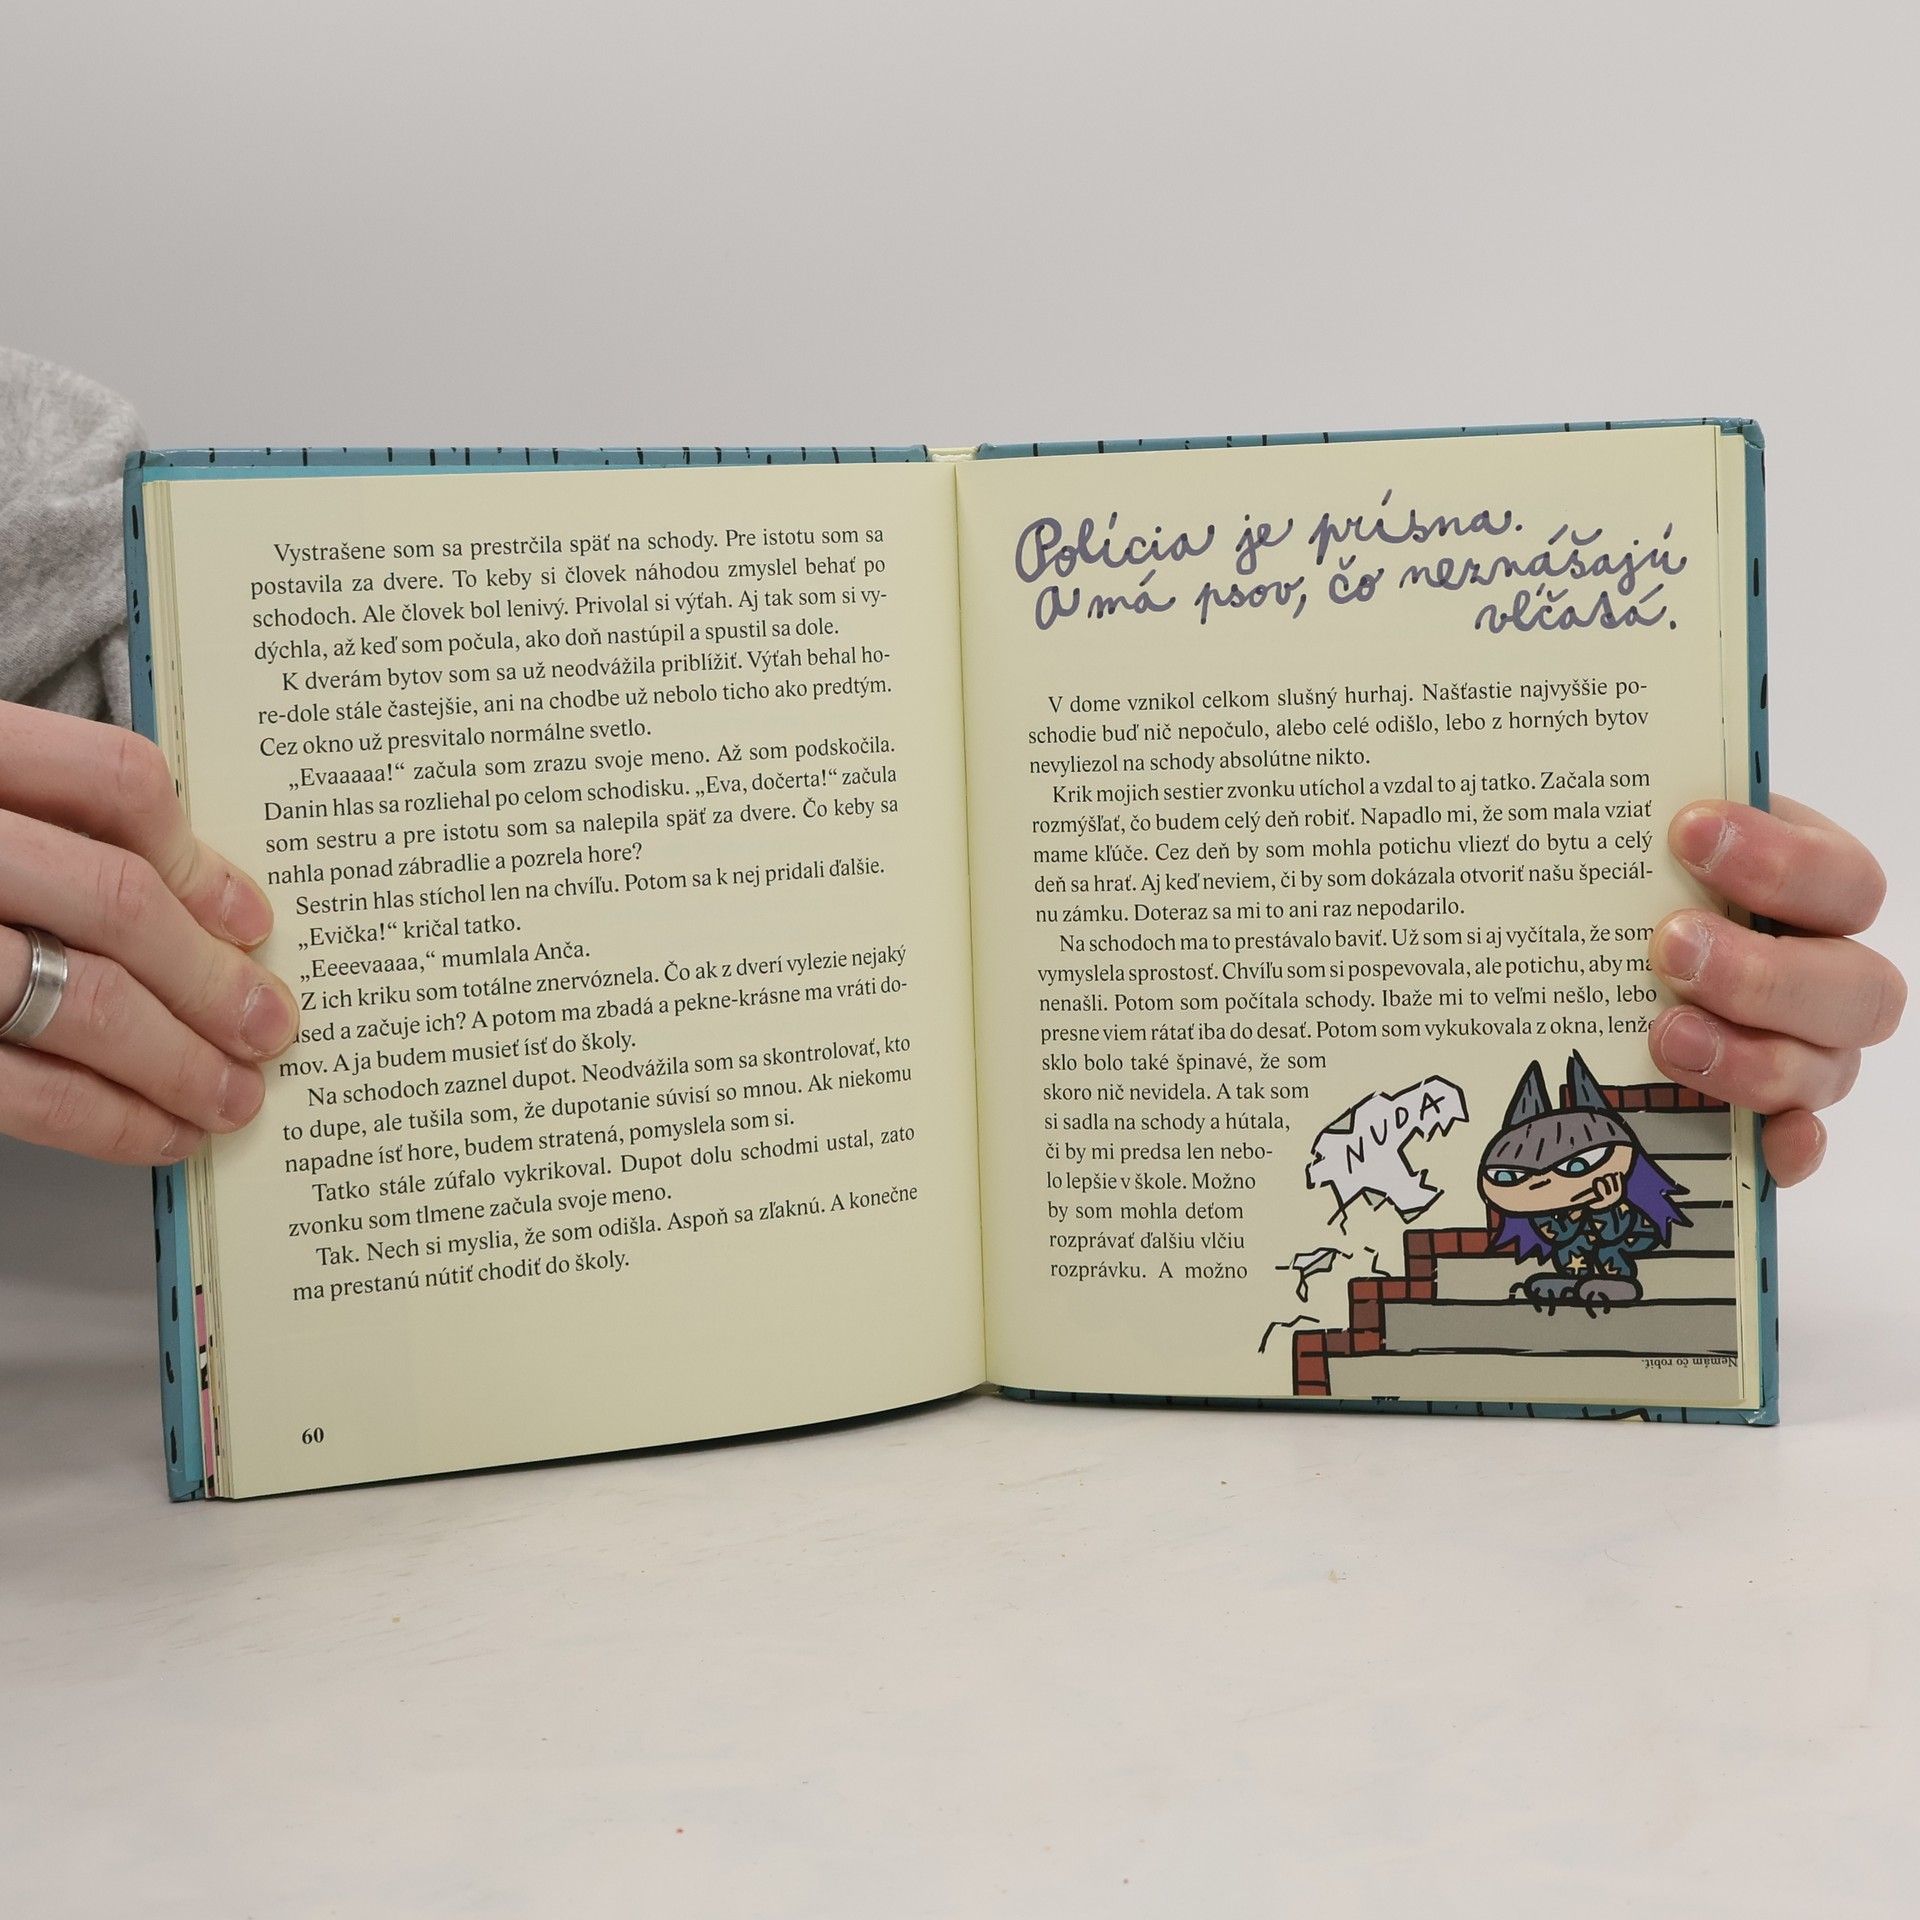 Vystrašene som sa prestrčila späť na schody. Pre istotu som sa
postavila za dvere. To keby si človek náhodou zmyslel behať po
schodoch. Ale človek bol lenivý. Privolal si výťah. Aj tak som si vy-
dýchla, až keď som počula, ako doň nastúpil a spustil sa dole.
K dverám bytov som sa už neodvážila priblížiť. Výťah behal ho-
re-dole stále častejšie, ani na chodbe už nebolo ticho ako predtým.
Cez okno už presvitalo normálne svetlo.
„Evaaaaa!“ začula som zrazu svoje meno. Až som podskočila.
Danin hlas sa rozliehal po celom schodisku. „Eva, dočerta!“ začula
som sestru a pre istotu som sa nalepila späť za dvere. Čo keby sa
nahla ponad zábradlie a pozrela hore?
Sestrin hlas stíchol len na chvíľu. Potom sa k nej pridali ďalšie.
„Evička!“ kričal tatko.
„Eeeevaaaa,“ mumlala Anča.
Z ich kriku som totálne znervóznela. Čo ak z dverí vylezie nejaký
sused a začuje ich? A potom ma zbadá a pekne-krásne ma vráti do-
mov. A ja budem musieť ísť do školy.
Na schodoch zaznel dupot. Neodvážila som sa skontrolovať, kto
to dupe, ale tušila som, že dupotanie súvisí so mnou. Ak niekomu
napadne ísť hore, budem stratená, pomyslela som si.
Tatko stále zúfalo vykrikoval. Dupot dolu schodmi ustal, zato
zvonku som tlmene začula svoje meno.
Tak. Nech si myslia, že som odišla. Aspoň sa zľaknú. A konečne
ma prestanú nútiť chodiť do školy.
60
Polícia je prísna.
A má psov, čo neznášajú
vlčatá.
V dome vznikol celkom slušný hurhaj. Našťastie najvyššie po-
schodie buď nič nepočulo, alebo celé odišlo, lebo z horných bytov
nevyliezol na schody absolútne nikto.
Krik mojich sestier zvonku utíchol a vzdal to aj tatko. Začala som
rozmýšľať, čo budem celý deň robiť. Napadlo mi, že som mala vziať
mame kľúče. Cez deň by som mohla potichu vliezť do bytu a celý
deň sa hrať. Aj keď neviem, či by som dokázala otvoriť našu špeciál-
nu zámku. Doteraz sa mi to ani raz nepodarilo.
Na schodoch ma to prestávalo baviť. Už som si aj vyčítala, že som
vymyslela sprostosť. Chvíľu som si pospevovala, ale potichu, aby ma
nenašli. Potom som počítala schody. Ibaže mi to veľmi nešlo, lebo
presne viem rátať iba do desať. Potom som vykukovala z okna, lenže
sklo bolo také špinavé, že som
skoro nič nevidela. A tak som
si sadla na schody a hútala,
či by mi predsa len nebo-
lo lepšie v škole. Možno
by som mohla deťom
rozprávať ďalšiu vlčiu
rozprávku. A možno
NUDA
Nemám čo robiť.